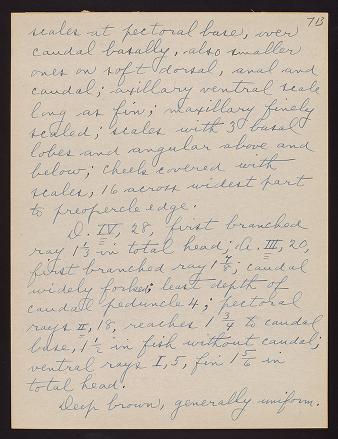 713
scales at pectoral base, over
caudal basally, also smaller
ones on soft dorsal, anal and
caudal; axillary ventral scale
long as fin; maxillary finely
scaled; scales with 3 basal
lobes and angular above and
below; cheek covered with
scales, 16 across widest part
to preopercle edge.
D. IV, 28, first branched
ray 1 1/3 in total head; A. III, 20,
first branched ray 1 7/8; caudal
widely forked; least depth of
caudal peduncle 4; pectoral
rays II, 18, reaches 1 3/4 to caudal
base, 1 1/2 in fish without caudal;
ventral rays I, 5, fin 1 5/6 in
total head.
Deep brown, generally uniform.